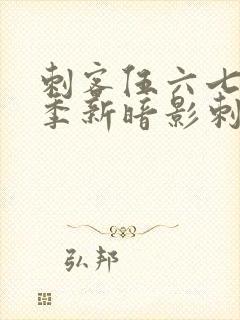 刺客伍六七
季新暗影刺
弘邦